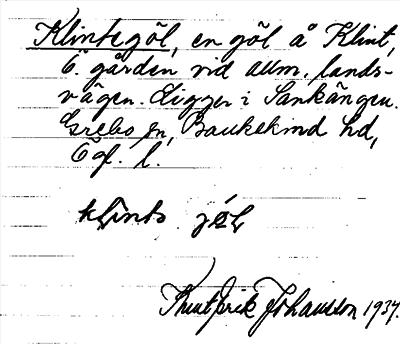 Klintegöl, en göl å Klint,
Ö. gården vid allm. lands-
vägen. Ligger i Sankängen.
Grebo sn, Bankekind hd,
Ögl. l.
klints
Knut Erik Johansson 1937.